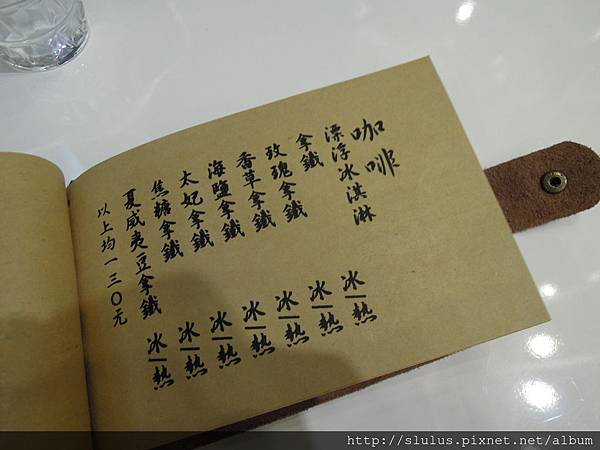 咖啡
漂浮冰淇淋
拿鐵 冰/熱
玫瑰拿鐵 冰/熱
香草拿鐵 冰/熱
海鹽拿鐵 冰/熱
太妃拿鐵 冰/熱
焦糖拿鐵 冰/熱
夏威夷豆拿鐵 冰/熱
以上均一三〇元
http://slulus.pixnet.net/album